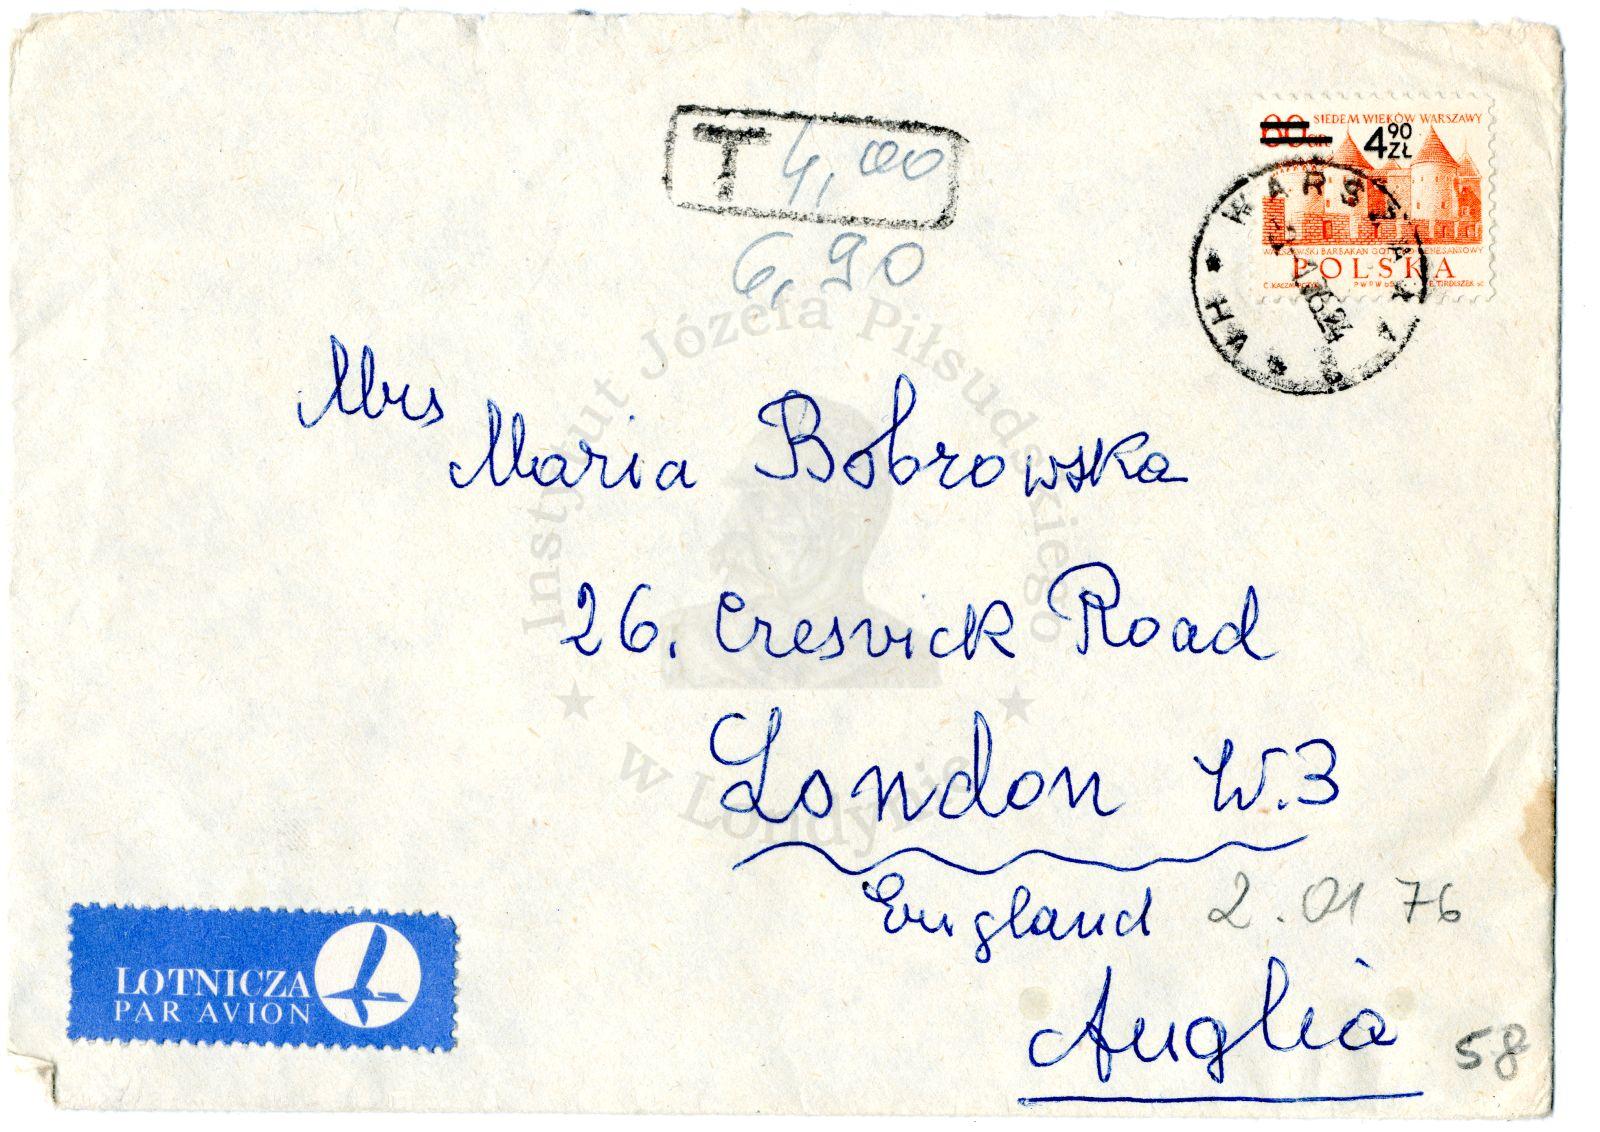 T 4,00
6,90
60 GR SIEDEM WIEKÓW WARSZAWY
4 90 ZŁ
WARSZAWSKI BARBAKAN GOTYCKO RENESANSOWY
POLSKA
WARSZAWA
Instytut Józefa Piłsudskiego
w Londynie
Mrs
Maria Bobrowska
26. Cresvick Road
London W.3
England 2.01 76
Anglia
58
LOTNICZA
PAR AVION